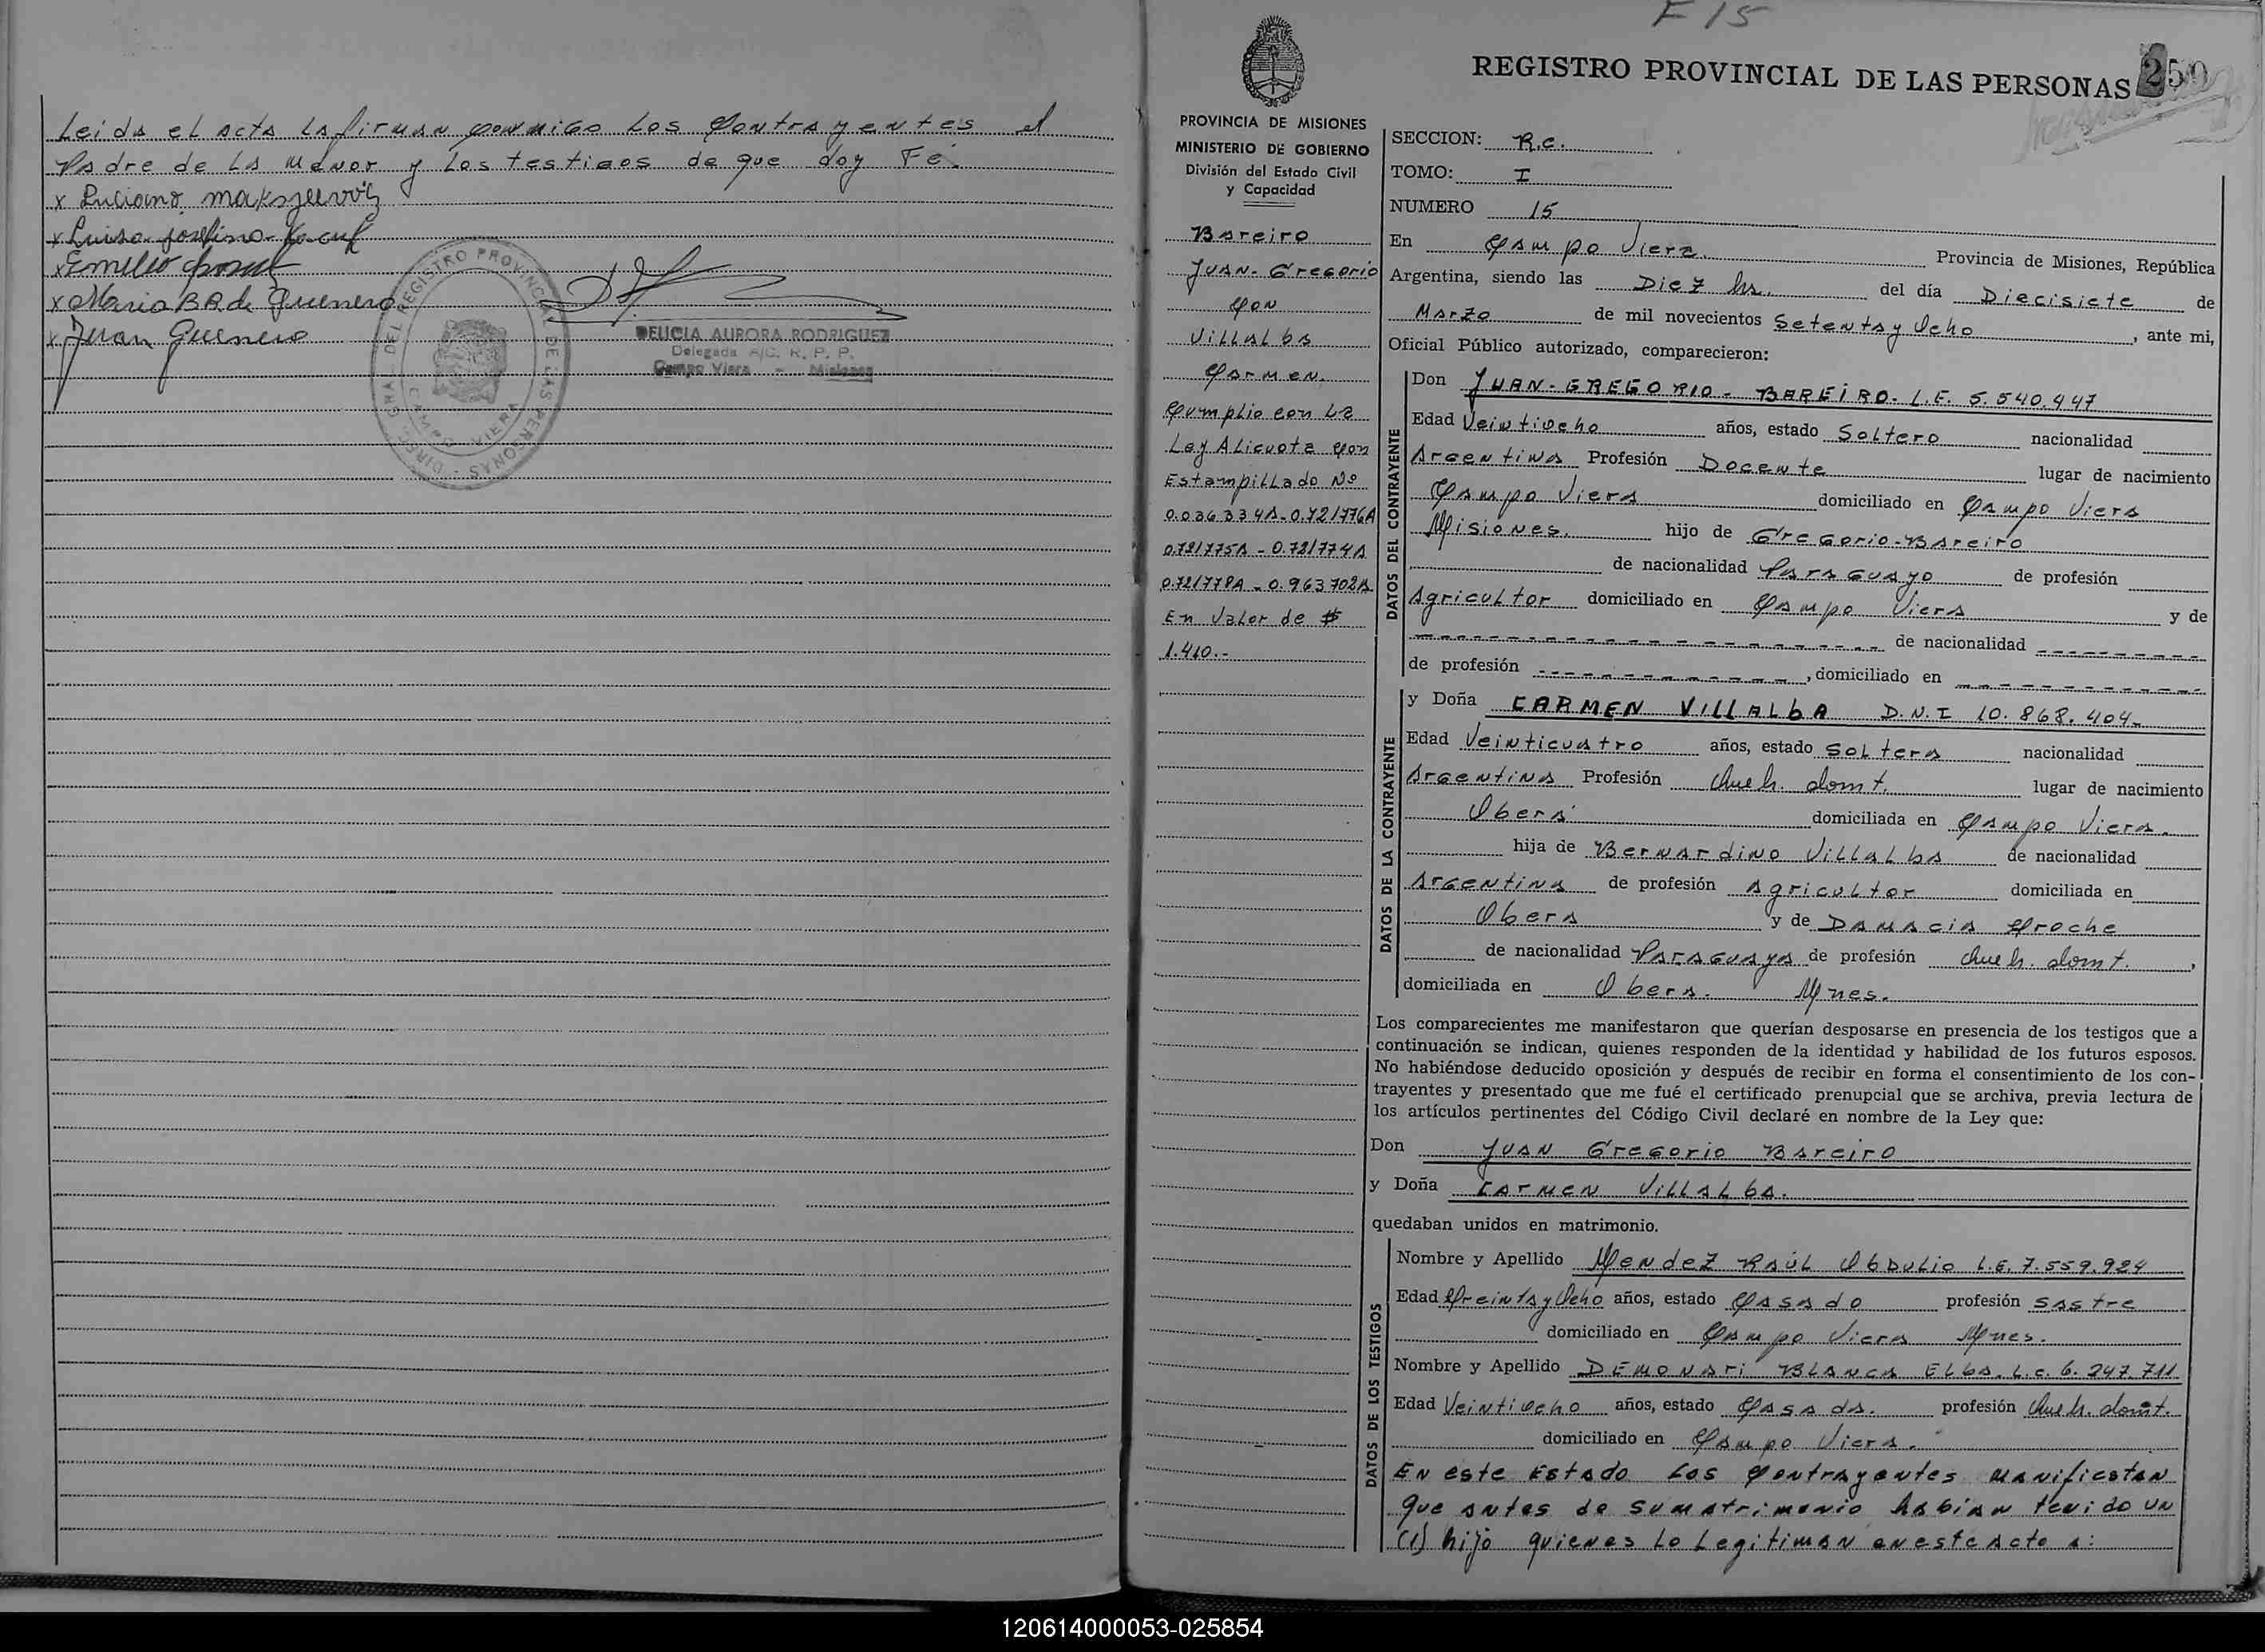 Leida el acta la firman conmigo los contrayentes el
Padre de la menor y los testigos de que doy Fé.
x Luciano
x Luisa Josefina
x Emilio
x Maria B R de Guerrero
x Juan Guerrero
DIREC. GRAL. DEL REGISTRO PROVINCIAL DE LAS PERSONAS
CAMPO VIERA
DELICIA AURORA RODRIGUEZ
Delegada A/C. R. P. P.
Campo Viera - Misiones
F 15
REGISTRO PROVINCIAL DE LAS PERSONAS 250
PROVINCIA DE MISIONES
MINISTERIO DE GOBIERNO
División del Estado Civil
y Capacidad
Bareiro
Juan-Gregorio
Con
Villalba
Carmen.
Cumplio con la
Ley Alicuota con
Estampillado Nº
0.036334A-0.721776A
0.721775A-0.721774A
0.721778A-0.963702A
En Valor de $
1.410.-
SECCION: R.C.
TOMO: I
NUMERO 15
En Campo Viera Provincia de Misiones, República
Argentina, siendo las Diez hs. del día Diecisiete de
Marzo de mil novecientos Setenta y Ocho, ante mi,
Oficial Público autorizado, comparecieron:
DATOS DEL CONTRAYENTE
Don JUAN-GREGORIO-BAREIRO-L.E. 5.540.447
Edad Veintiocho años, estado Soltero nacionalidad
Argentina Profesión Docente lugar de nacimiento
Campo Viera domiciliado en Campo Viera
Misiones. hijo de Gregorio-Bareiro
de nacionalidad Paraguayo de profesión
Agricultor domiciliado en Campo Viera y de
de nacionalidad
de profesión , domiciliado en
DATOS DE LA CONTRAYENTE
y Doña CARMEN VILLALBA D.N.I 10.868.404-
Edad Veinticuatro años, estado Soltera nacionalidad
Argentina Profesión Queh. domt. lugar de nacimiento
Oberá domiciliada en Campo Viera.
hija de Bernardino Villalba de nacionalidad
Argentina de profesión Agricultor domiciliada en
Obera y de Damacia Croche
de nacionalidad Paraguaya de profesión Queh. domt. ,
domiciliada en Obera. Mnes.
Los comparecientes me manifestaron que querían desposarse en presencia de los testigos que a
continuación se indican, quienes responden de la identidad y habilidad de los futuros esposos.
No habiéndose deducido oposición y después de recibir en forma el consentimiento de los con-
trayentes y presentado que me fué el certificado prenupcial que se archiva, previa lectura de
los artículos pertinentes del Código Civil declaré en nombre de la Ley que:
Don Juan Gregorio Bareiro
y Doña Carmen Villalba.
quedaban unidos en matrimonio.
DATOS DE LOS TESTIGOS
Nombre y Apellido Mendez Raúl Obdulio L.E. 7.559.924
Edad Treinta y Ocho años, estado Casado profesión Sastre
domiciliado en Campo Viera Mnes.
Nombre y Apellido DEMONARI BLANCA ELBA. L.C. 6.247.711
Edad Veintiocho años, estado Casada. profesión Queh. domt.
domiciliado en Campo Viera.
En este Estado los Contrayentes manifiestan
que antes de su matrimonio habian tenido un
(1) hijo quienes lo Legitiman en este acto a:
120614000053-025854